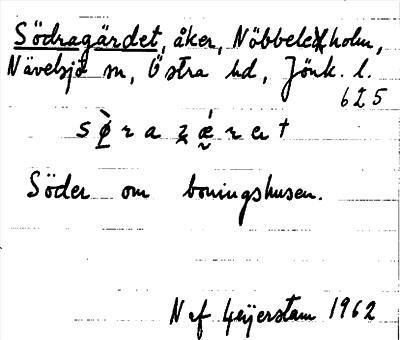 Södragärdet, åker, Nöbbelekholm,
Nävelsjö sn, Östra hd, Jönk. l.
625
sø̀ra ʒǽrət
Söder om boningshusen.
N af Geijerstam 1962